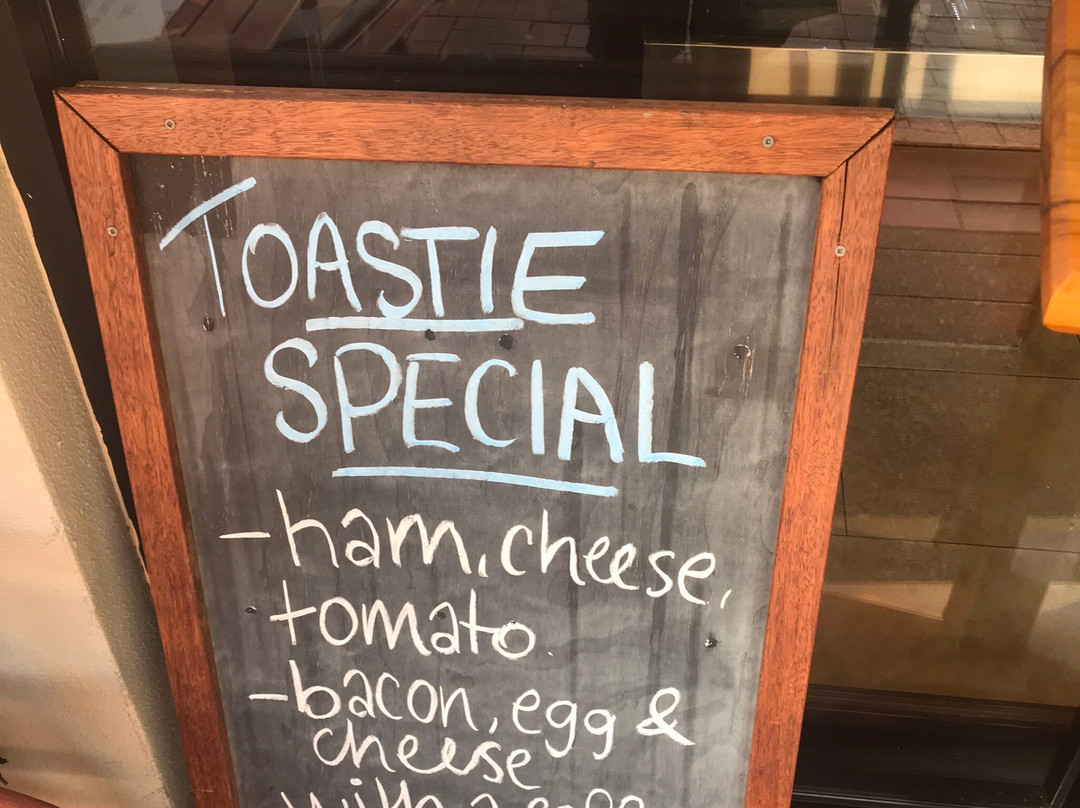 TOASTIE
SPECIAL
- ham, cheese,
tomato.
- bacon, egg &
cheese
with a